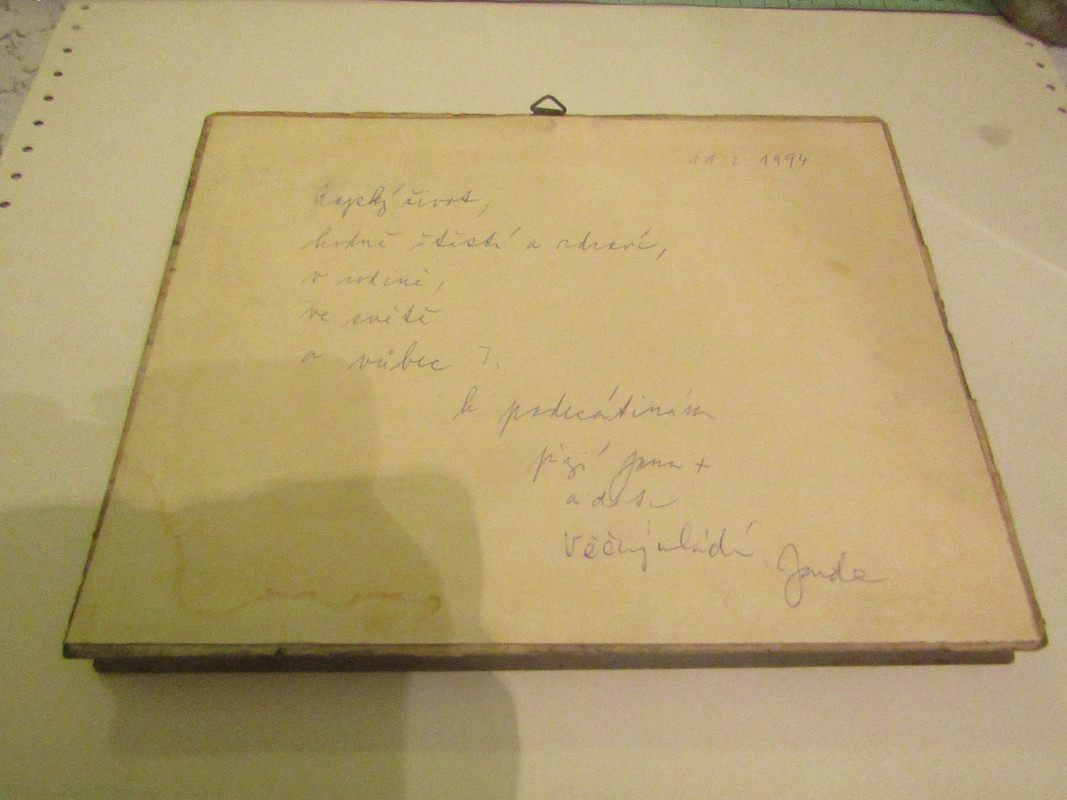 19 2 1994
život,
hodně štěstí a zdraví,
v rodině,
ve světě
a vůbec
k padesátinám
přejí Jana +
a děti
Věčný mládí Janda